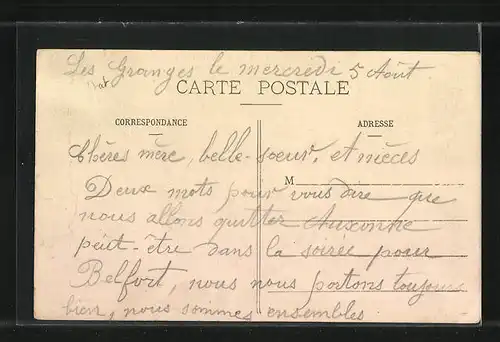 Les Granges le mercredi 5 Août
CARTE POSTALE
CORRESPONDANCE
ADRESSE
Chères mère, belle-soeur, et nièces
M
Deux mots pour vous dire que
nous allons quitter Auxonne
peut-être dans la soirée pour
Belfort, nous nous portons toujours
bien, nous sommes ensembles